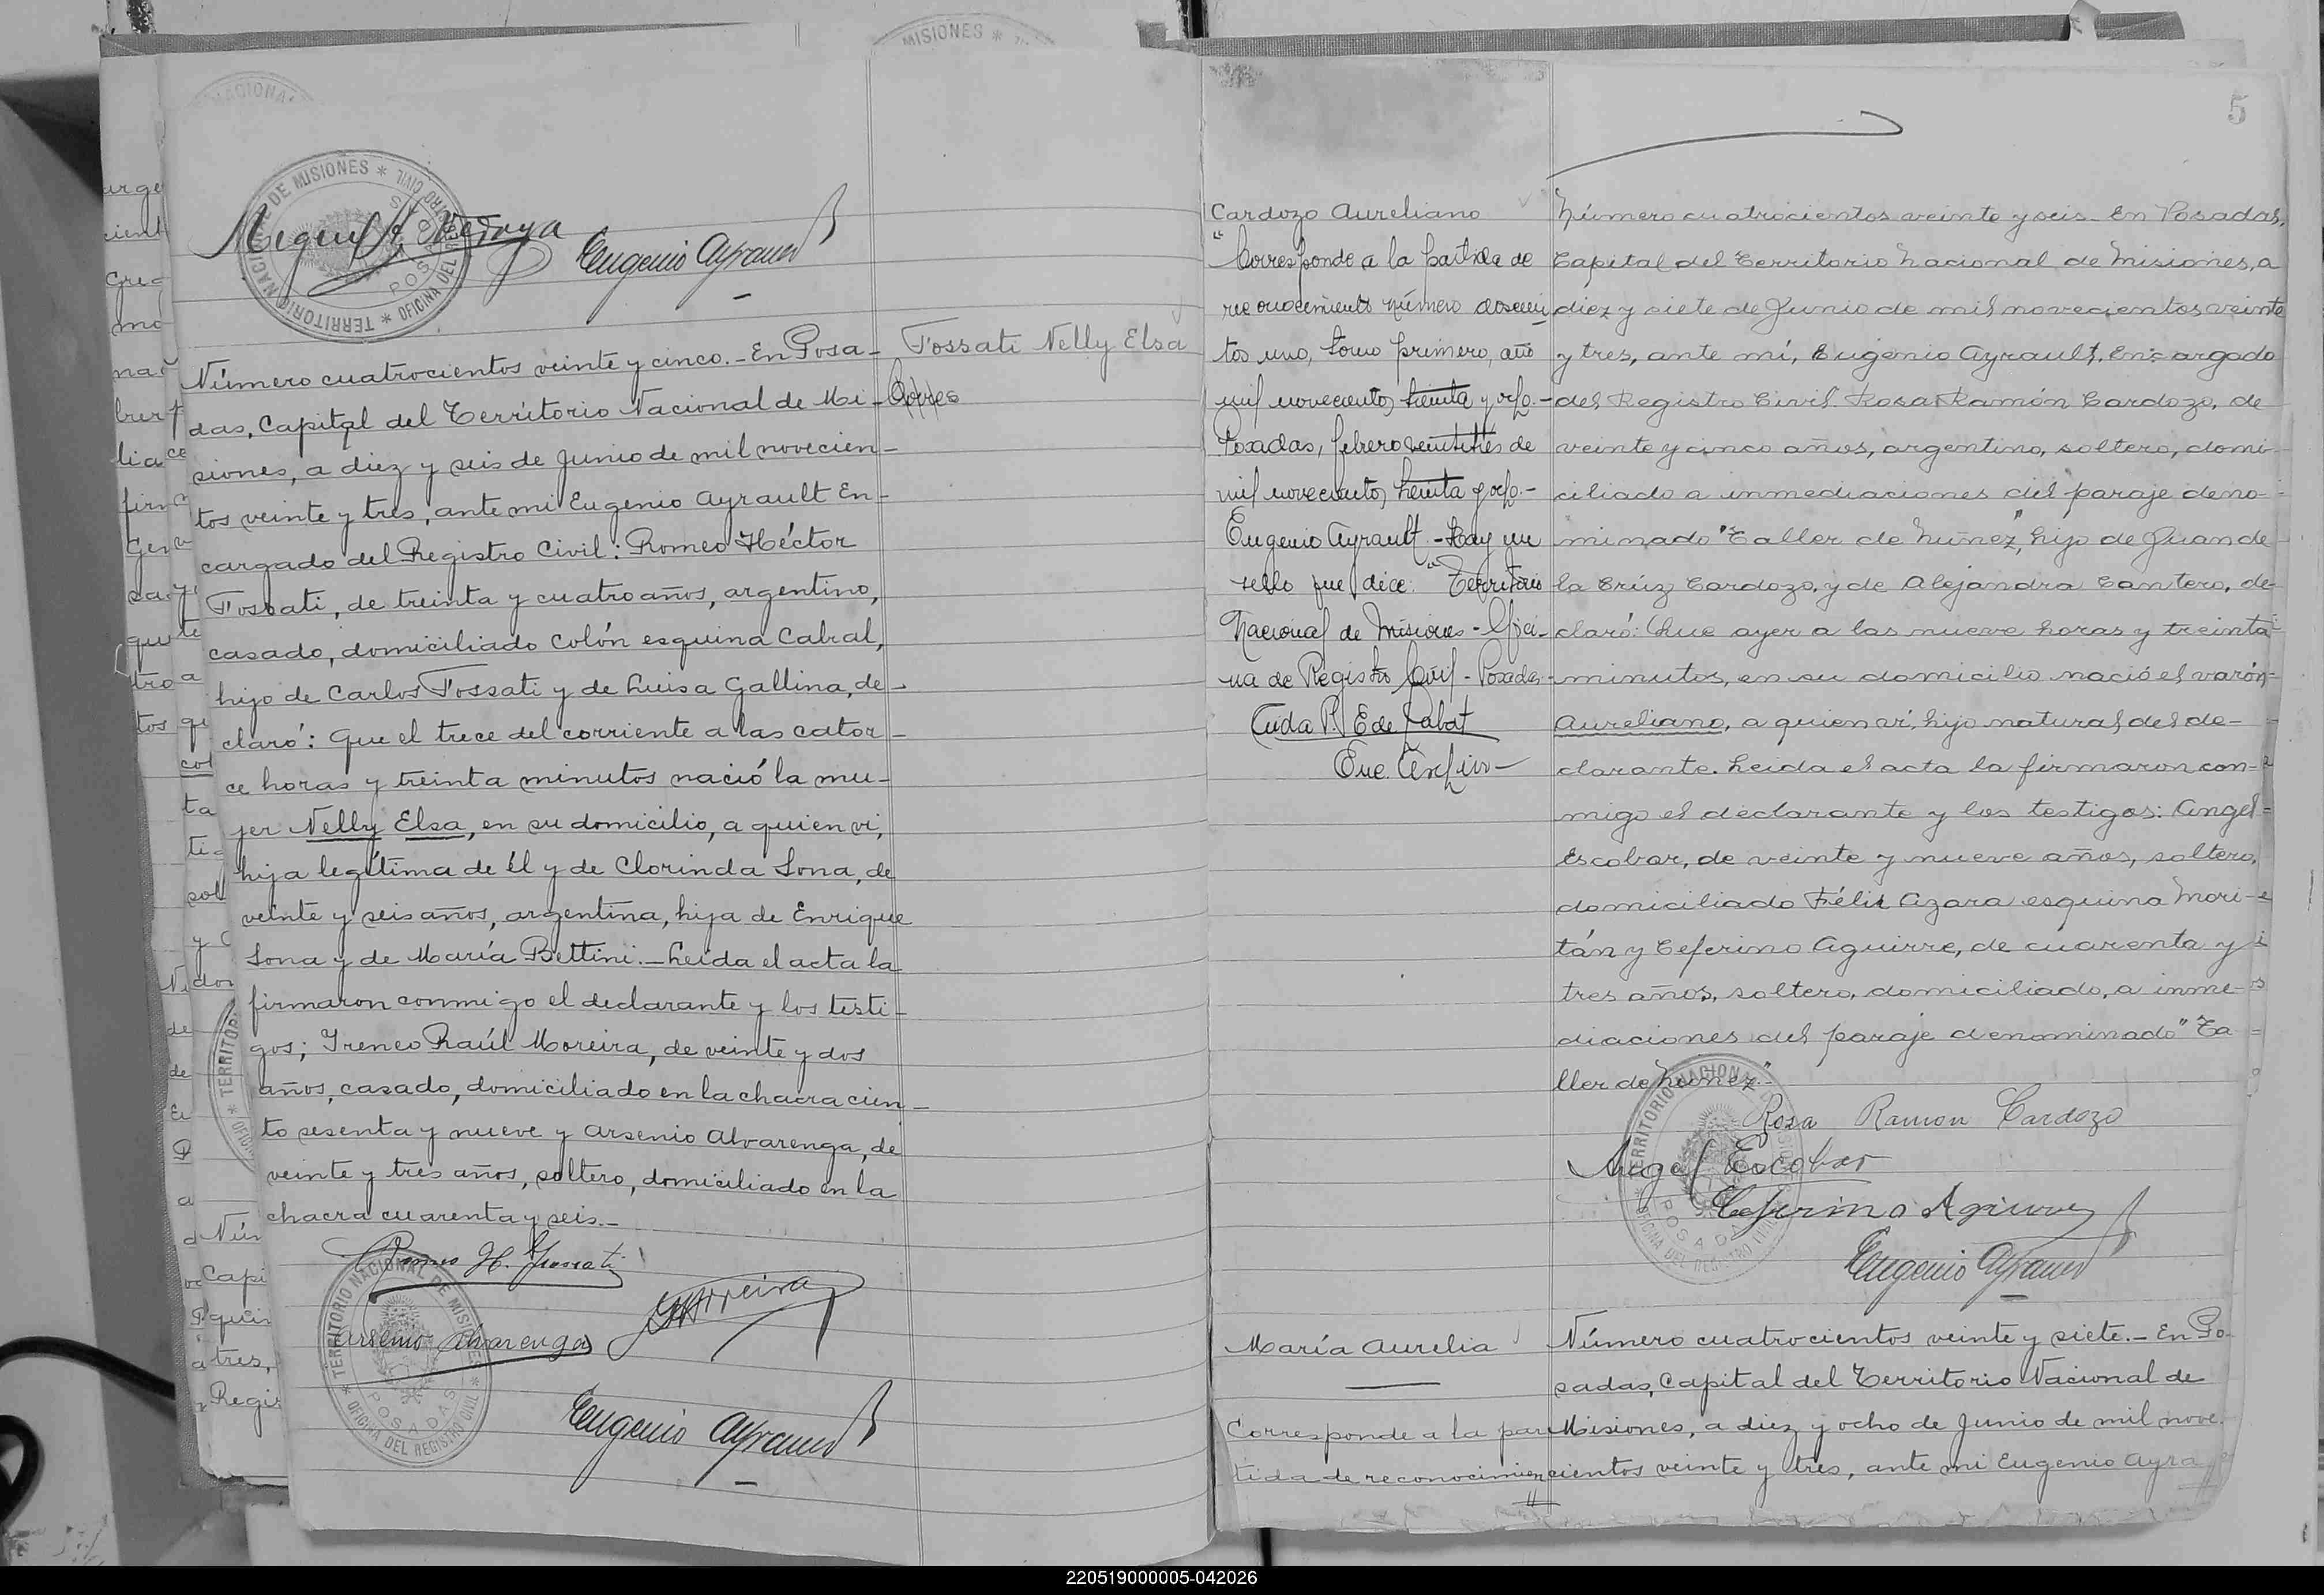 MISIONES *
TERRITORIO NACIONAL DE MISIONES * OFICINA DEL REGISTRO CIVIL *
POSADAS
Eugenio Ayrault
Fossati Nelly Elsa
Corres
Número cuatrocientos veinte y cinco.- En Posa-
das, Capital del Territorio Nacional de Mi-
siones, a diez y seis de Junio de mil novecien-
tos veinte y tres, ante mi Eugenio Ayrault En-
cargado del Registro Civil: Romeo Héctor
Fossati, de treinta y cuatro años, argentino,
casado, domiciliado Colón esquina Cabral,
hijo de Carlos Fossati y de Luisa Gallina, de-
claró: Que el trece del corriente a las cator-
ce horas y treinta minutos nació la mu-
jer Nelly Elsa, en su domicilio, a quien vi,
hija legítima de él y de Clorinda Sona, de
veinte y seis años, argentina, hija de Enrique
Sona y de María Bettini.- Leída el acta la
firmaron conmigo el declarante y los testi-
gos; Ireneo Raúl Moreira, de veinte y dos
años, casado, domiciliado en la chacra cien-
to sesenta y nueve y Arsenio Alvarenga, de
veinte y tres años, soltero, domiciliado en la
chacra cuarenta y seis.-
Romeo H. Fossati
Moreira
Arsenio Alvarenga
Eugenio Ayrault
TERRITORIO NACIONAL DE MISIONES * OFICINA DEL REGISTRO CIVIL *
POSADAS
5
Cardozo Aureliano
"Corresponde a la partida de
reconocimiento número doscien-
tos uno, tomo primero, año
mil novecientos treinta y ocho.-
Posadas, febrero veintitrés de
mil novecientos treinta y ocho.-
Eugenio Ayrault.- Hay un
sello que dice: "Territorio
Nacional de Misiones- Ofici-
na de Registro Civil- Posadas-
Número cuatrocientos veinte y seis- En Posadas,
Capital del Territorio Nacional de Misiones, a
diez y siete de Junio de mil novecientos veinte
y tres, ante mí, Eugenio Ayrault, Encargado
del Registro Civil: Rosa Ramón Cardozo, de
veinte y cinco años, argentino, soltero, domi-
ciliado a inmediaciones del paraje deno-
minado "Taller de Núñez", hijo de Juan de
la Crúz Cardozo, y de Alejandra Cantero, de-
claró: Que ayer a las nueve horas y treinta
minutos, en su domicilio nació el varón
Aureliano, a quien vi, hijo natural del de-
clarante. Leida el acta la firmaron con-
migo el declarante y los testigos: Angel
Escobar, de veinte y nueve años, soltero,
domiciliado Félix Azara esquina Mori-
tán y Ceferino Aguirre, de cuarenta y
tres años, soltero, domiciliado, a inme-
diaciones del paraje denominado "Ta
ller de Núnez."
Rosa Ramon Cardozo
Angel Escobar
Ceferino Aguirre
Eugenio Ayrault
TERRITORIO NACIONAL DE MISIONES * OFICINA DEL REGISTRO CIVIL *
POSADAS
María Aurelia
Corresponde a la par
tida de reconocimien
Número cuatrocientos veinte y siete.- En Po-
sadas, Capital del Territorio Nacional de
Misiones, a diez y ocho de Junio de mil nove-
cientos veinte y tres, ante mi Eugenio Ayra
220519000005-042026